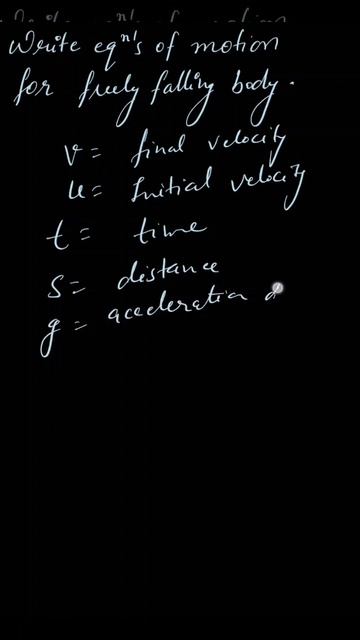 Write eqn's of motion
for freely falling body.
v = final velocity
u = Initial velocity
t = time
s = distance
g = acceleration d